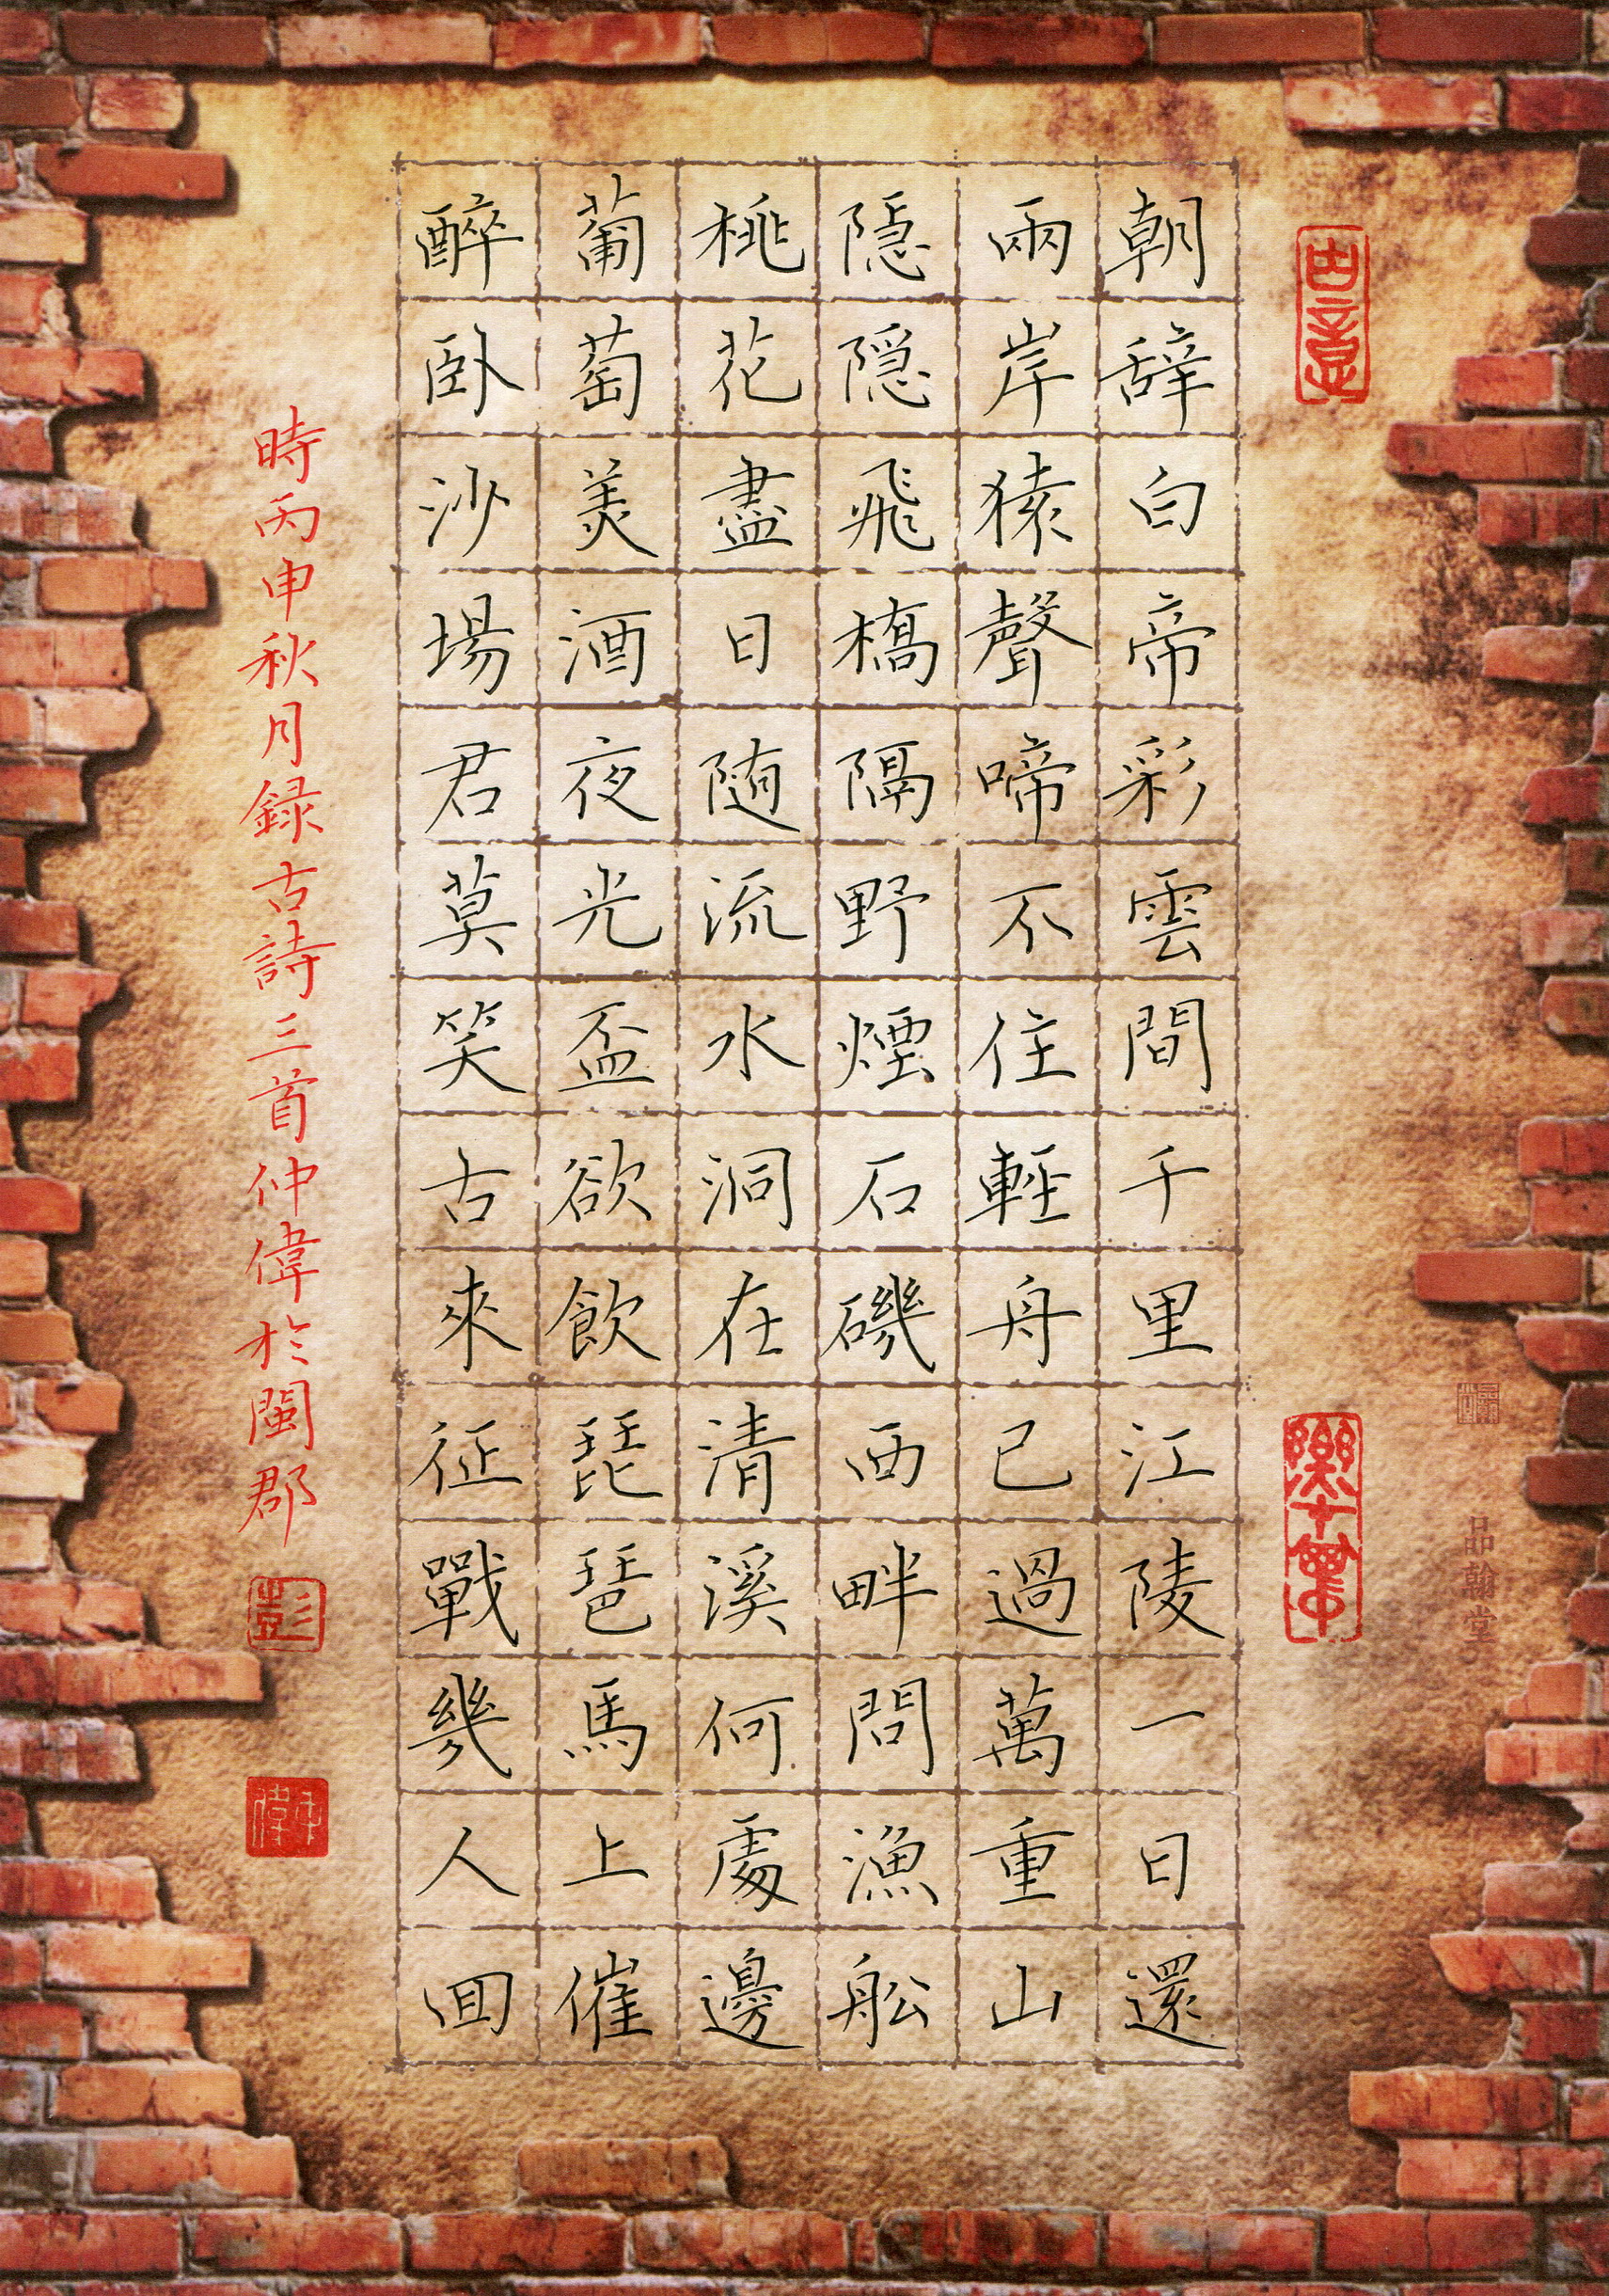 朝辭白帝彩雲間千里江陵一日還
兩岸猿聲啼不住輕舟已過萬重山
隠隠飛橋隔野煙石磯西畔問漁舩
桃花盡日随流水洞在清溪何處邊
葡萄美酒夜光盃欲飲琵琶馬上催
醉卧沙場君莫笑古來征戰幾人回
時丙申秋月録古詩三首仲偉於閩郡
彭
品翰堂